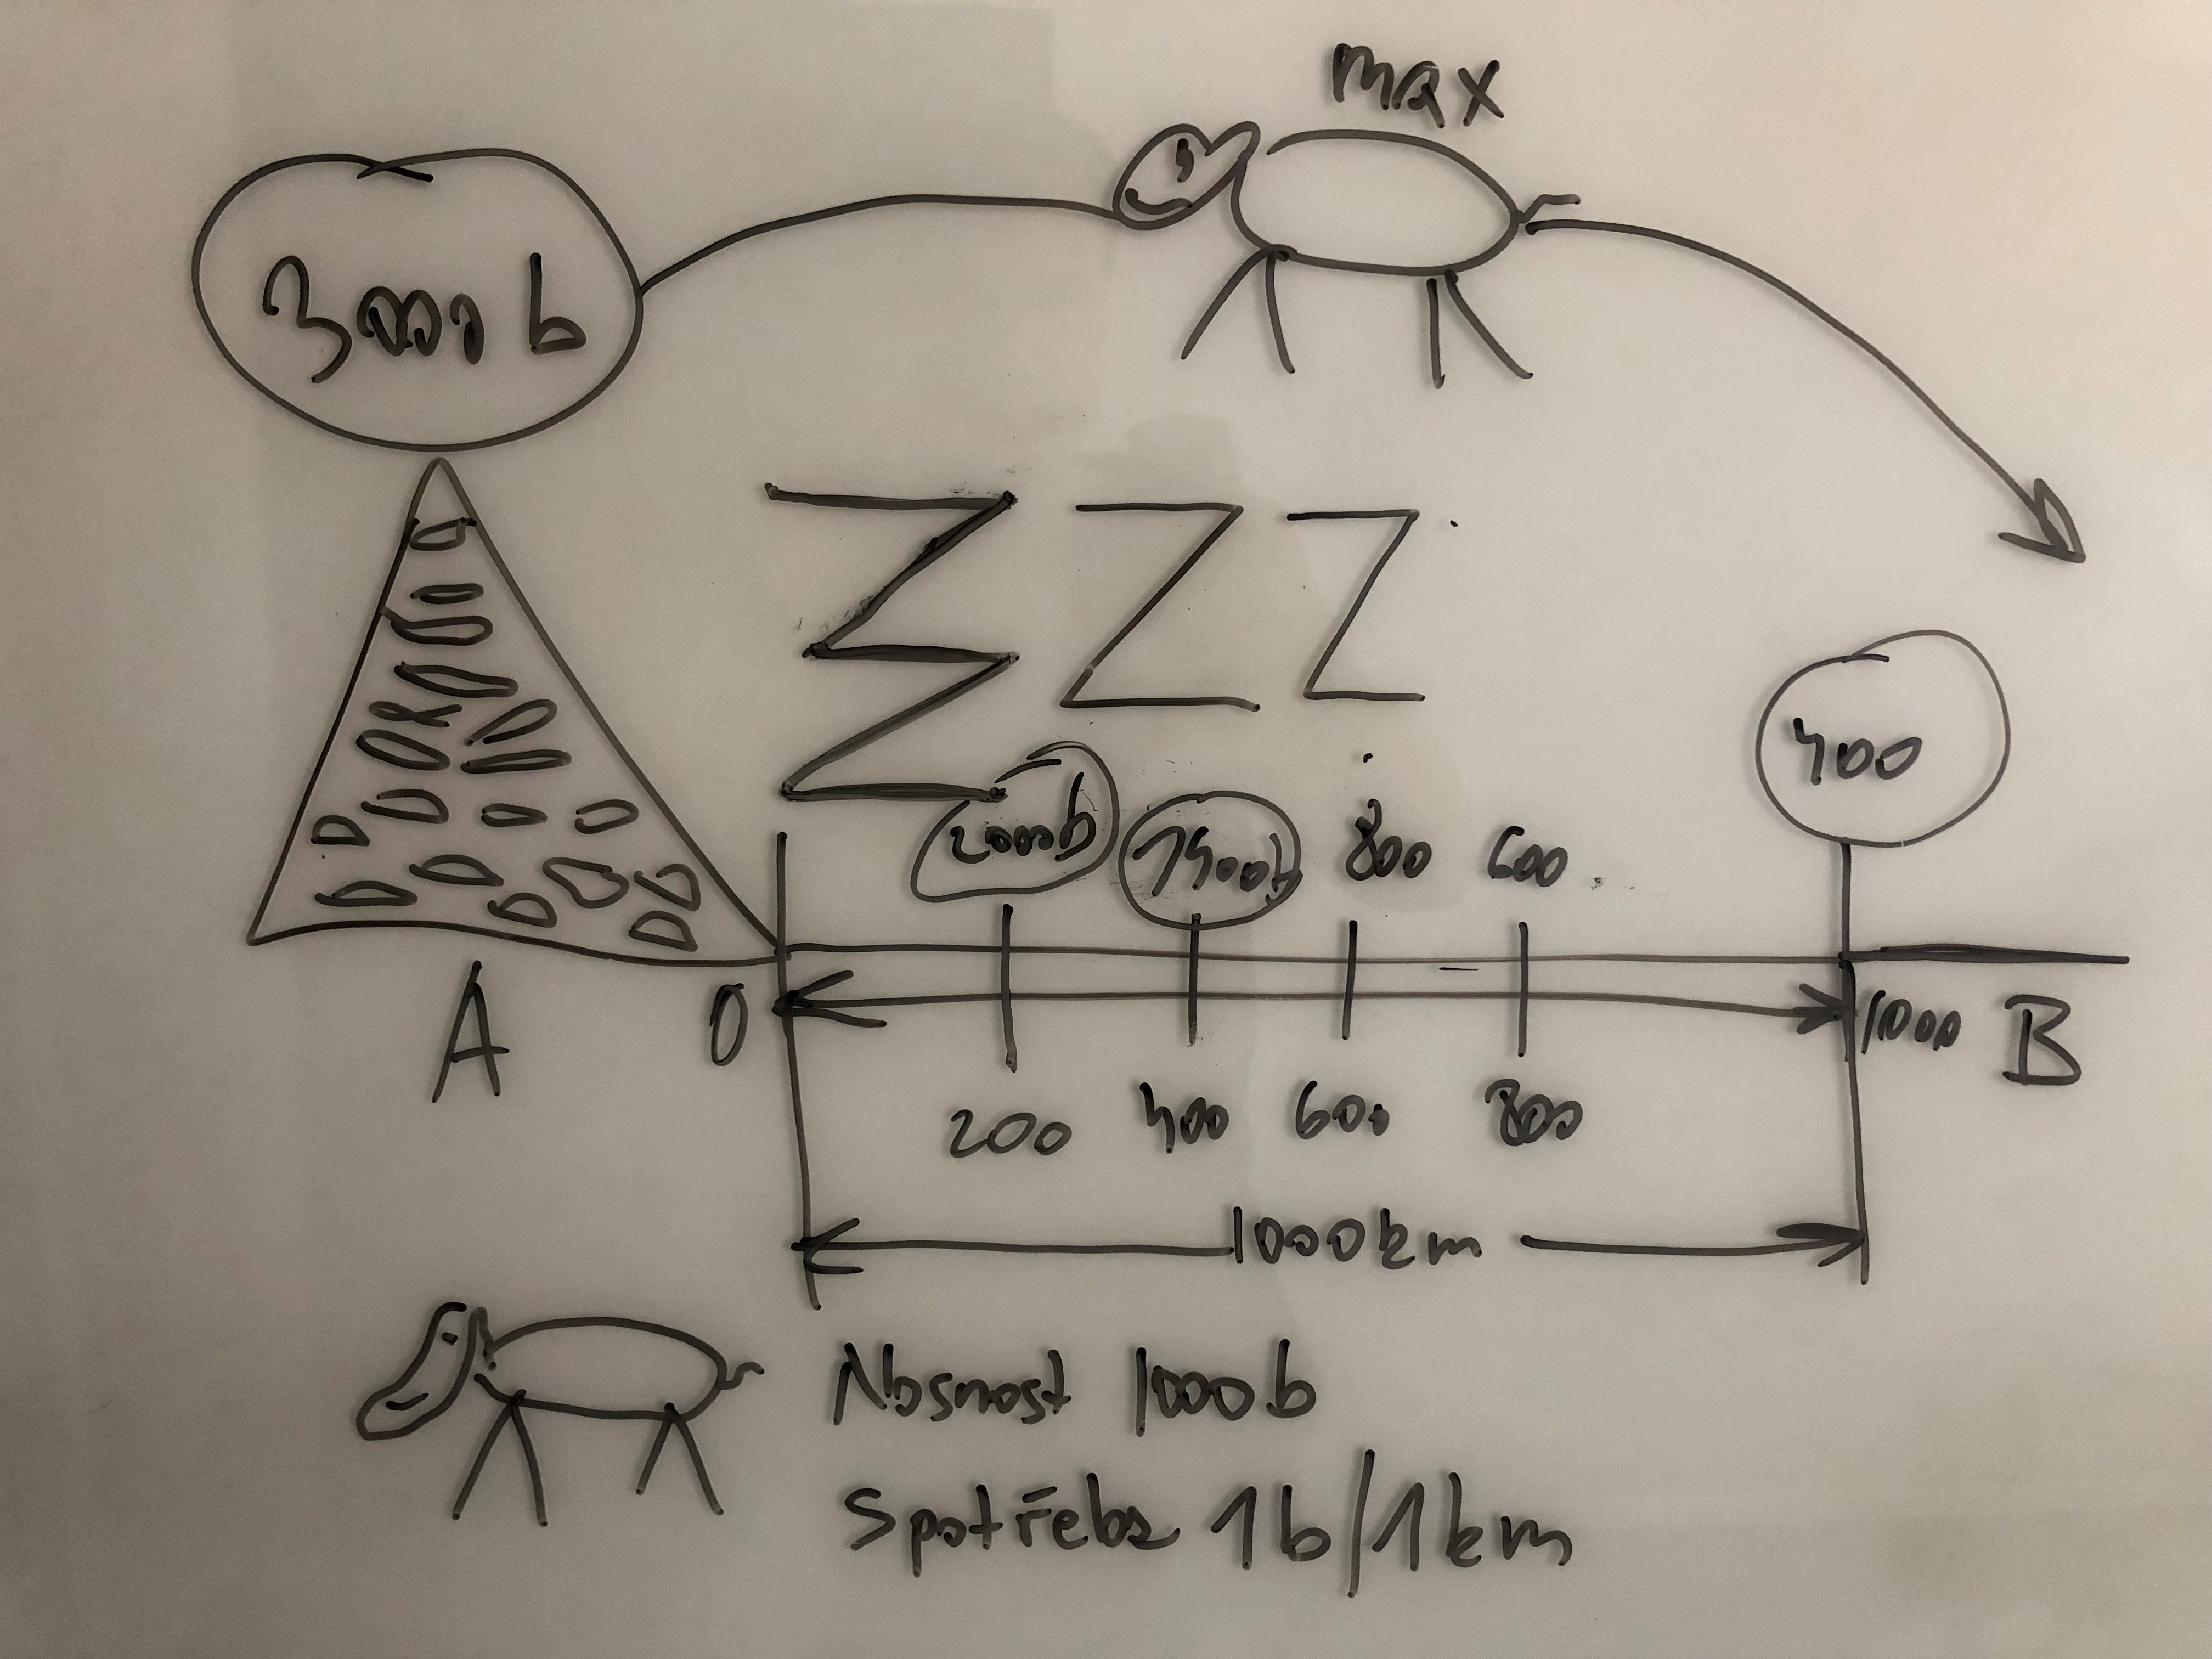 max
3000 b
ZZZ
400
2000b 1400b 800 600
A 0 1000 B
200 400 600 800
1000km
Nosnost 1000b
Spotřeba 1b/1km